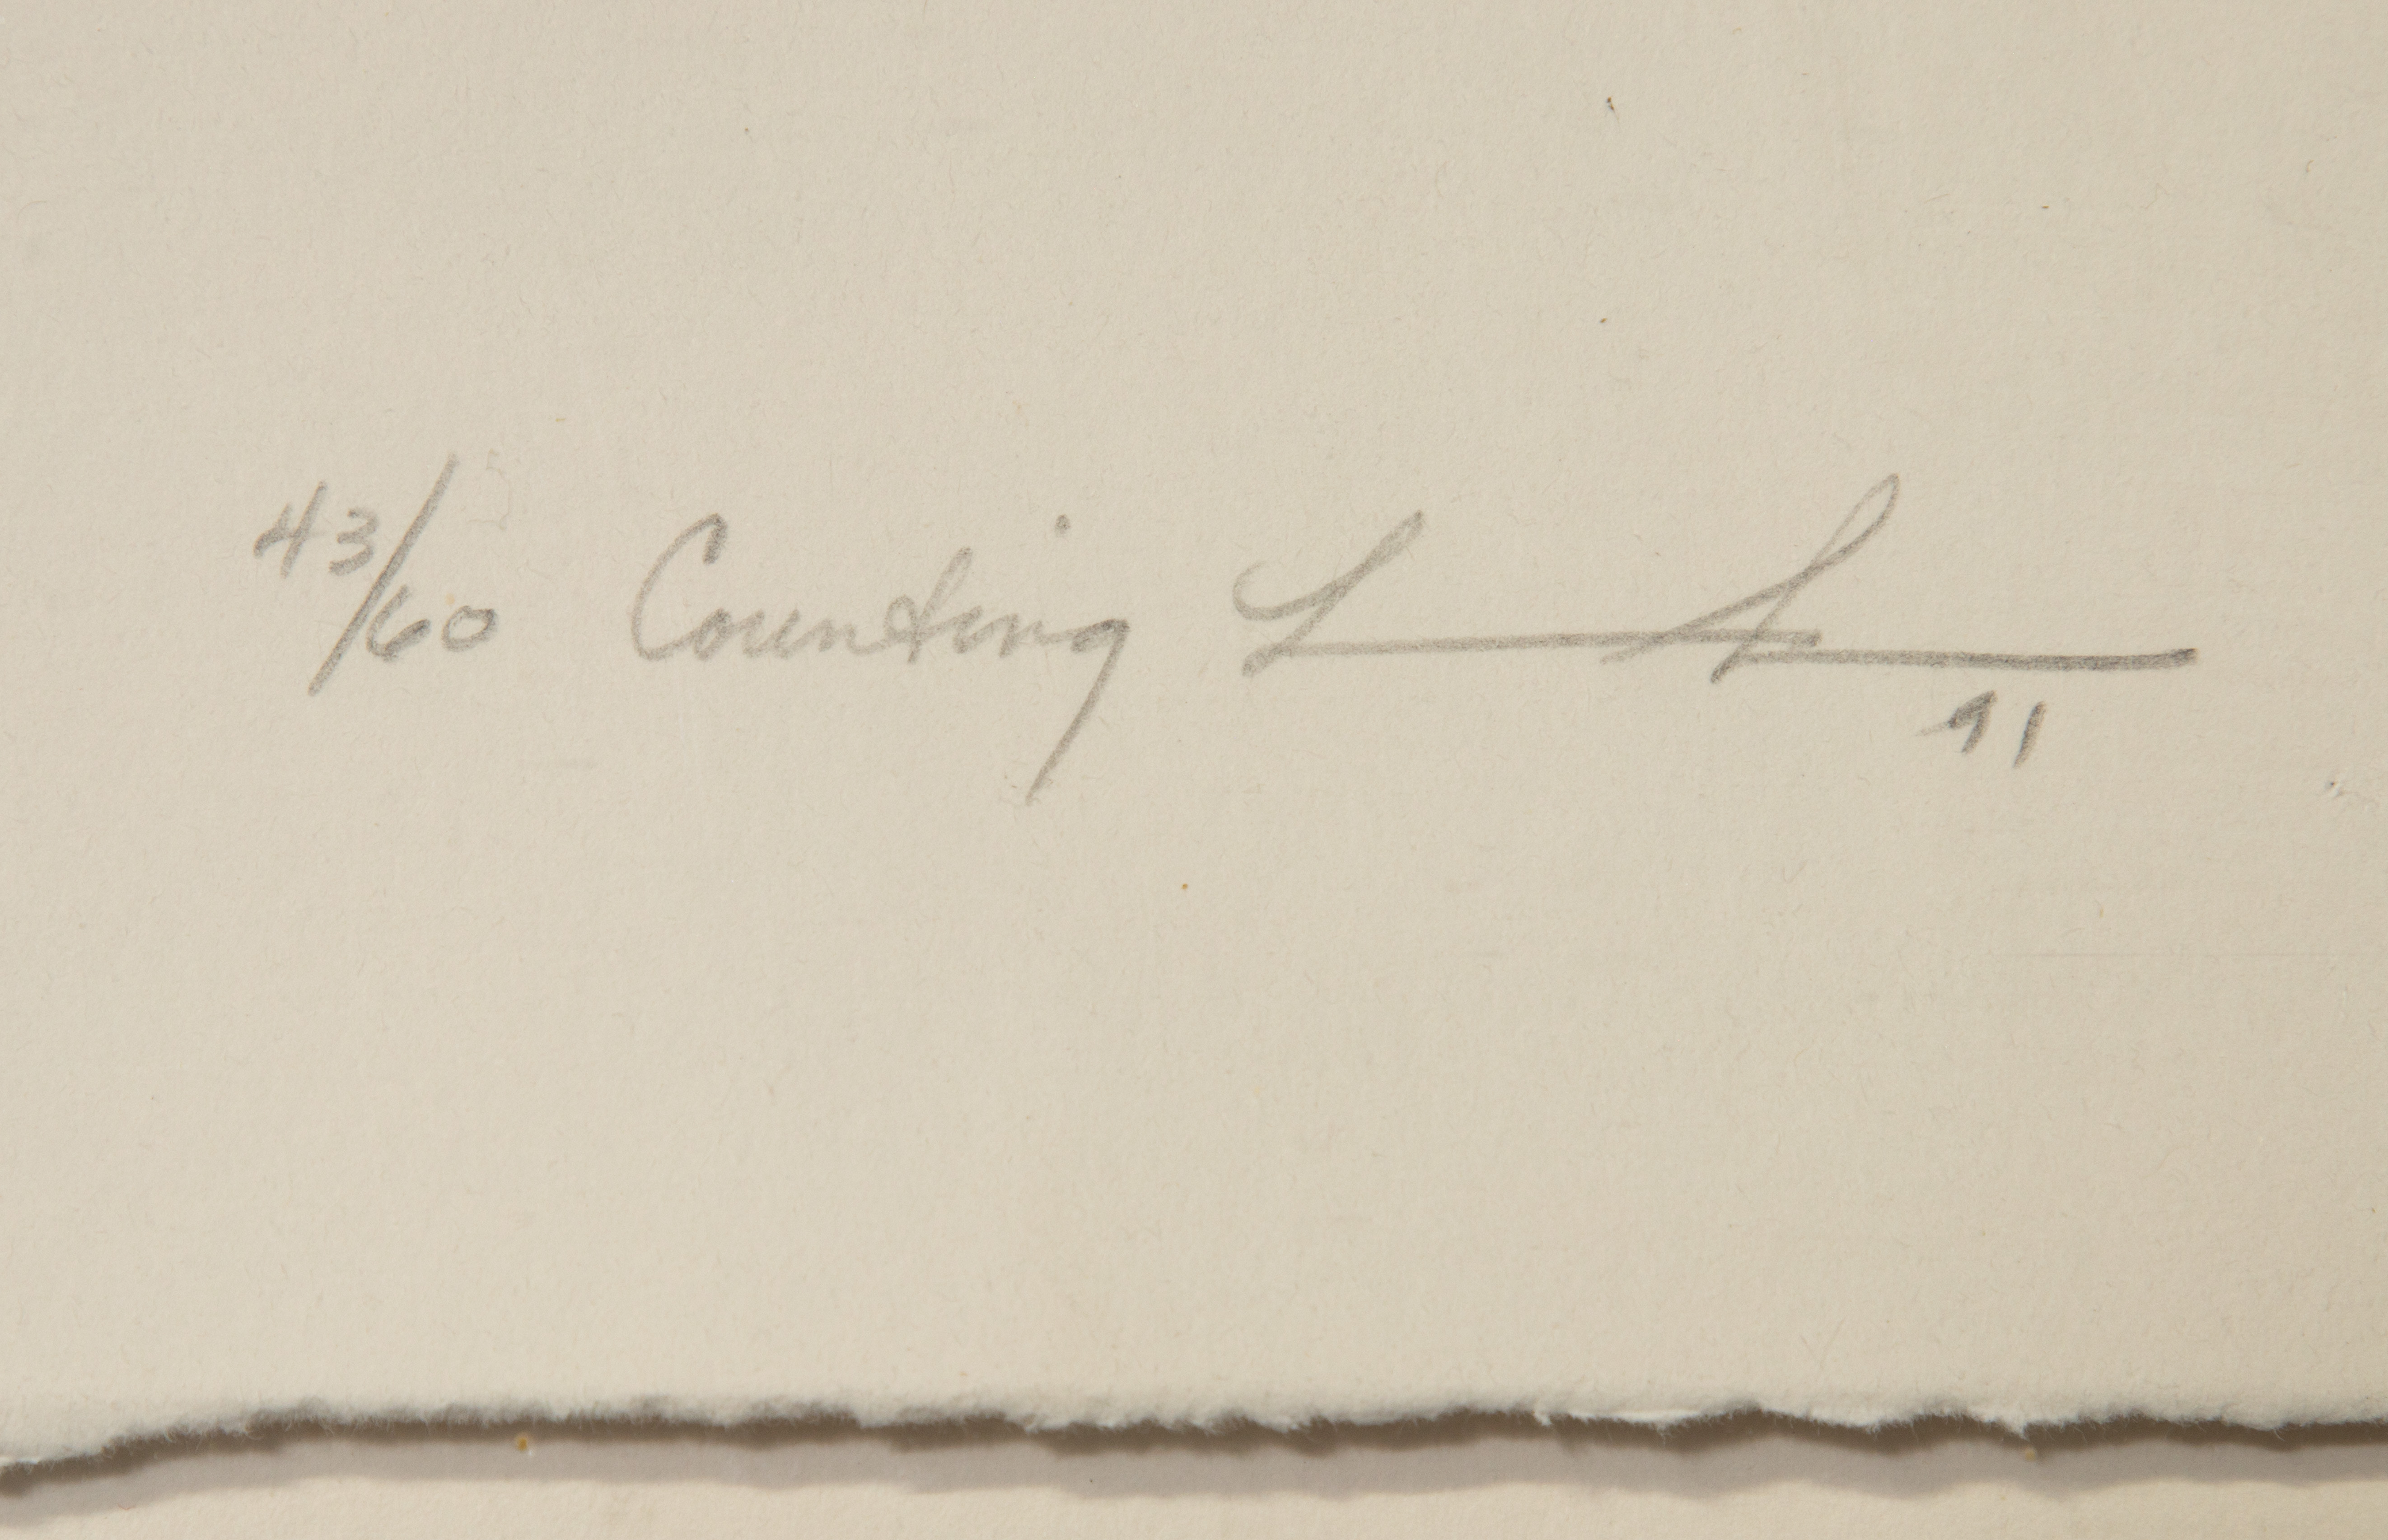 43/60 Counting
91